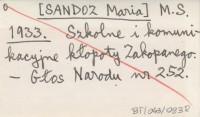 [SANDOZ Maria] M.S.
1933. Szkolne i komuni-
kacyjne kłopoty Zakopanego.
- Głos Narodu nr 252.